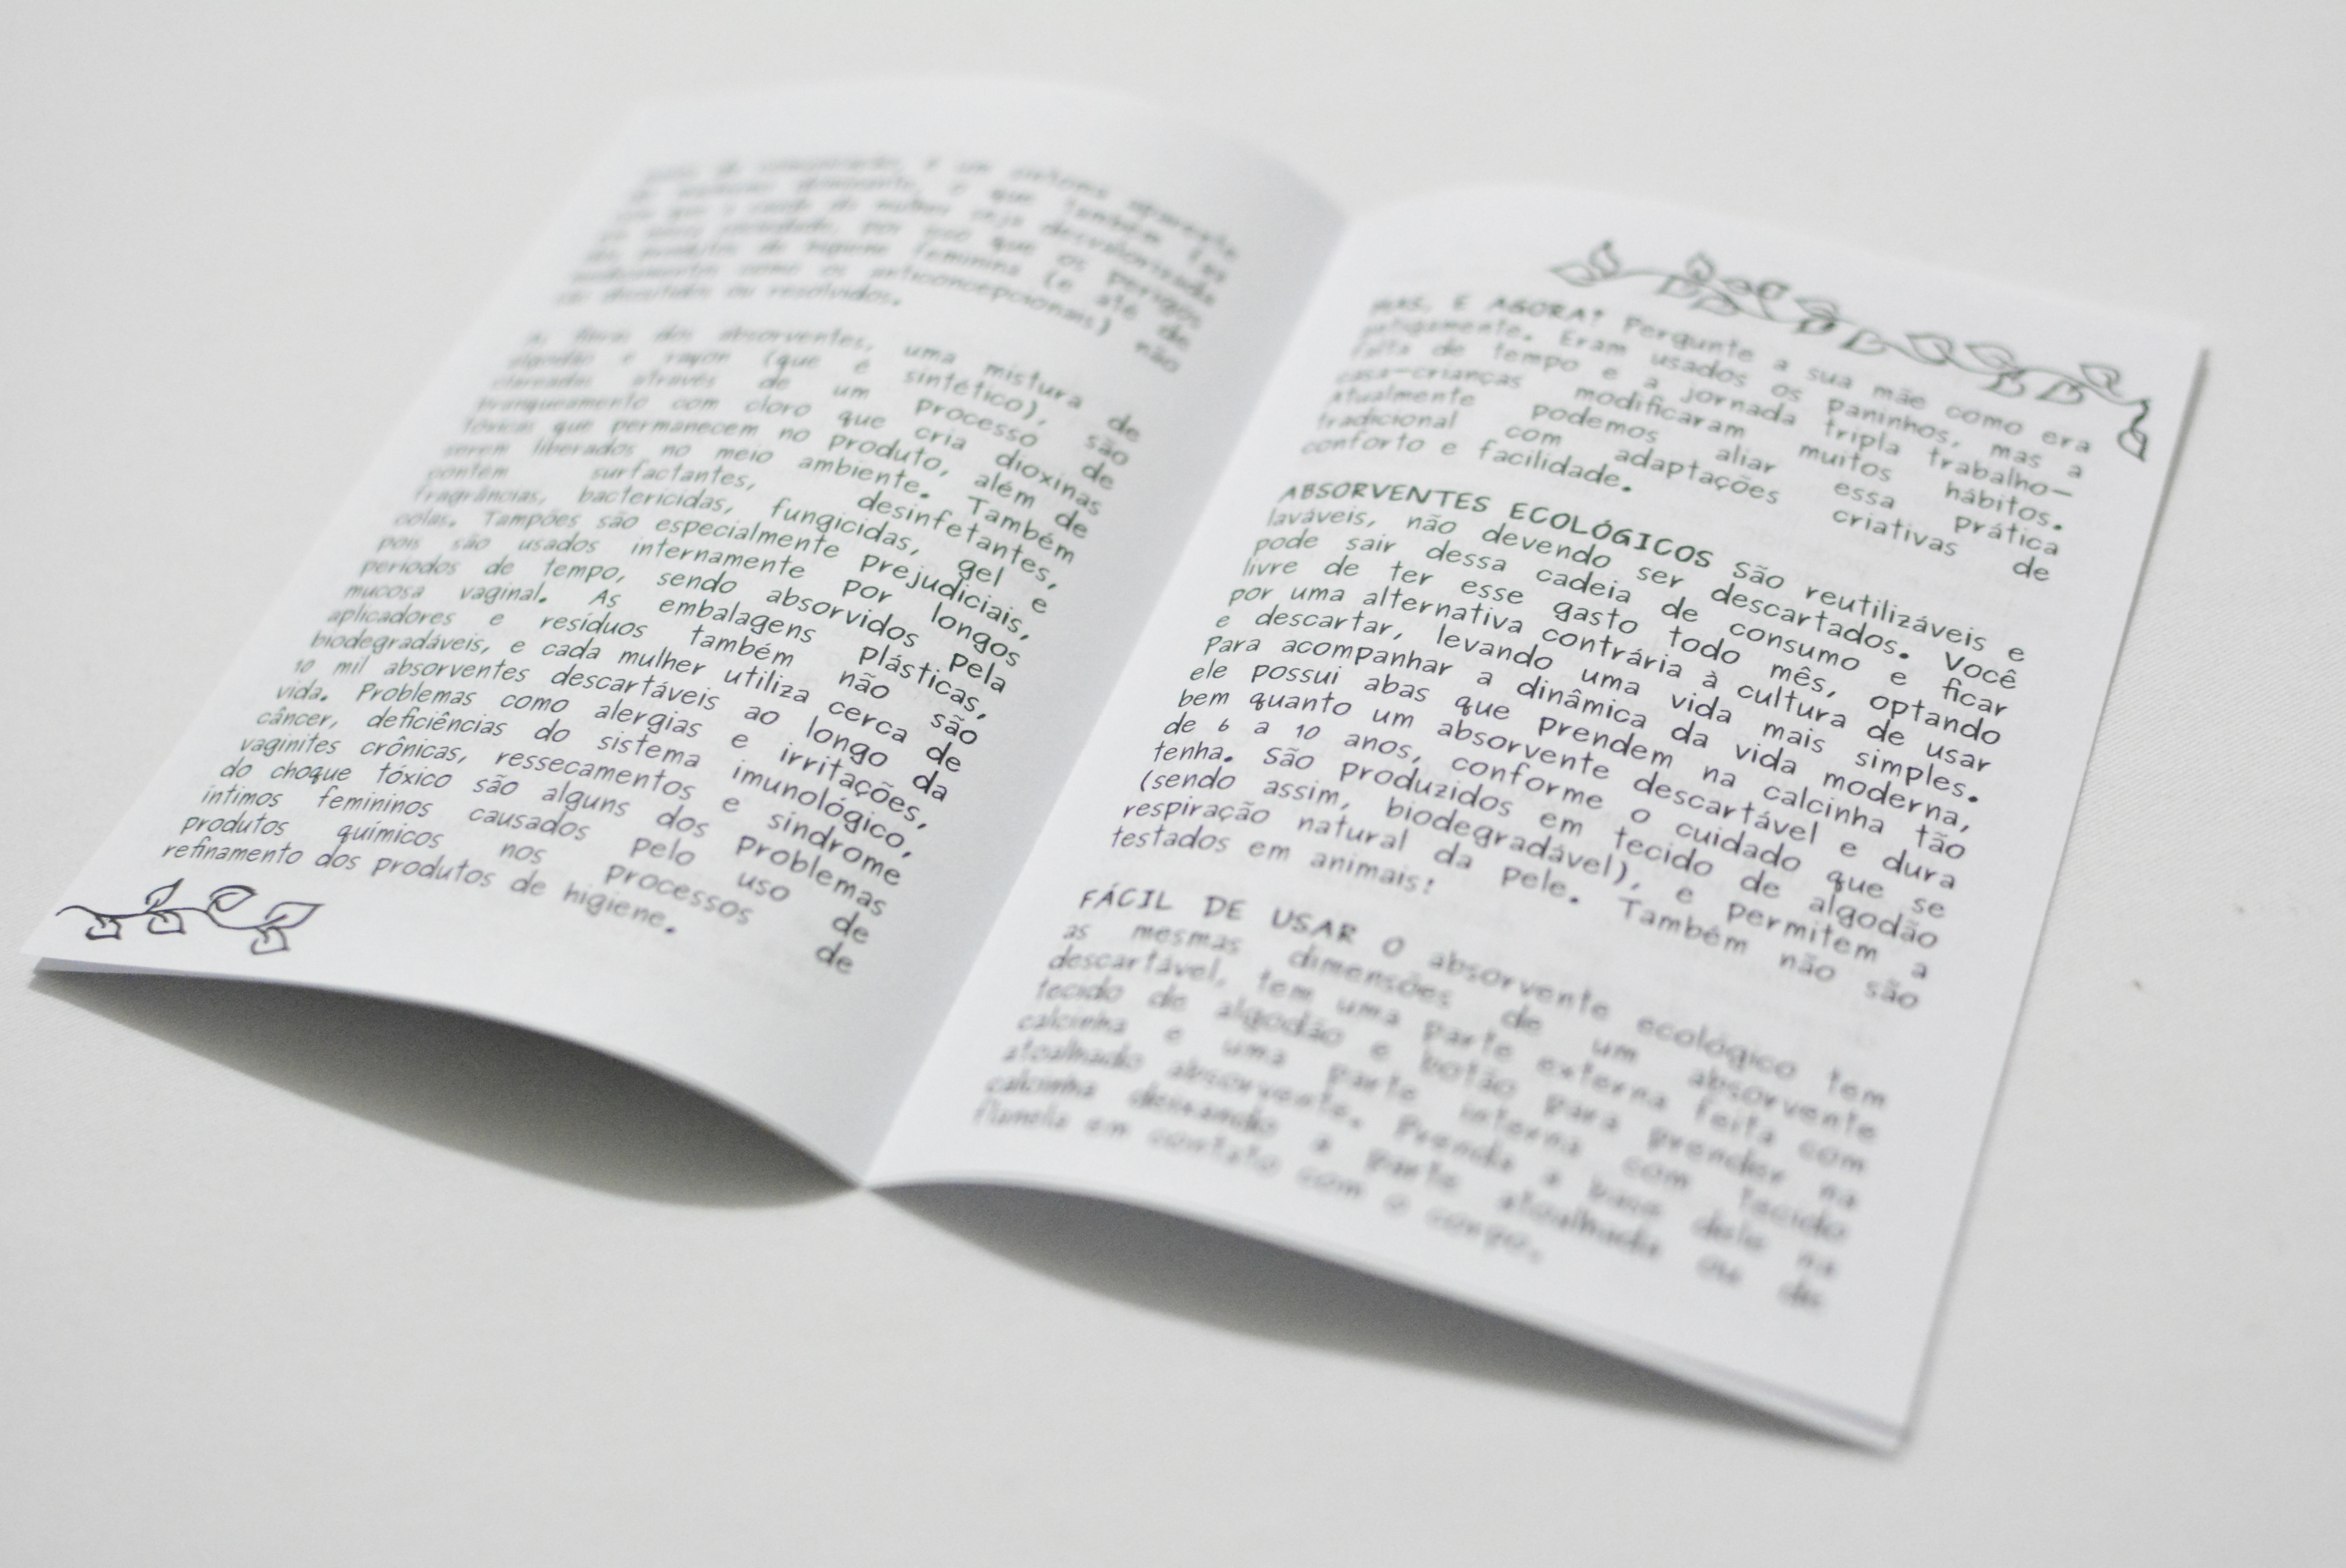 que os perigos
produtos de higiene feminina (e até de
como os anticoncepcionais) não
ou resolvidos.
dos absorventes, uma mistura de
algodão e rayon (que é sintético), são
clareadas através de um processo de
branqueamento com cloro que cria dioxinas
tóxicas que permanecem no produto, além de
serem liberados no meio ambiente. Também
contém surfactantes, desinfetantes,
fragrâncias, bactericidas, fungicidas, gel e
colas. Tampões são especialmente prejudiciais,
pois são usados internamente por longos
períodos de tempo, sendo absorvidos pela
mucosa vaginal. As embalagens plásticas,
aplicadores e resíduos também não são
biodegradáveis, e cada mulher utiliza cerca de
10 mil absorventes descartáveis ao longo da
vida. Problemas como alergias e irritações,
câncer, deficiências do sistema imunológico,
vaginites crônicas, ressecamentos e síndrome
do choque tóxico são alguns dos problemas
íntimos femininos causados pelo uso de
produtos químicos nos processos de
refinamento dos produtos de higiene.
MAS, E AGORA? Pergunte a sua mãe como era
antigamente. Eram usados os paninhos, mas a
falta de tempo e a jornada tripla trabalho-
casa-crianças modificaram muitos hábitos.
Atualmente podemos aliar essa prática
tradicional com adaptações criativas de
conforto e facilidade.
ABSORVENTES ECOLÓGICOS São reutilizáveis e
laváveis, não devendo ser descartados. Você
pode sair dessa cadeia de consumo e ficar
livre de ter esse gasto todo mês, optando
por uma alternativa contrária à cultura de usar
e descartar, levando uma vida mais simples.
Para acompanhar a dinâmica da vida moderna,
ele possui abas que prendem na calcinha tão
bem quanto um absorvente descartável e dura
de 6 a 10 anos, conforme o cuidado que se
tenha. São produzidos em tecido de algodão
(sendo assim, biodegradável), e permitem a
respiração natural da pele. Também não são
testados em animais!
FÁCIL DE USAR O absorvente ecológico tem
as mesmas dimensões de um absorvente
descartável, tem uma parte externa feita com
tecido de algodão e botão para prender na
calcinha e uma parte interna com tecido
atoalhado absorvente. Prenda a base dele na
calcinha deixando a parte atoalhada ou de
flanela em contato com o corpo.